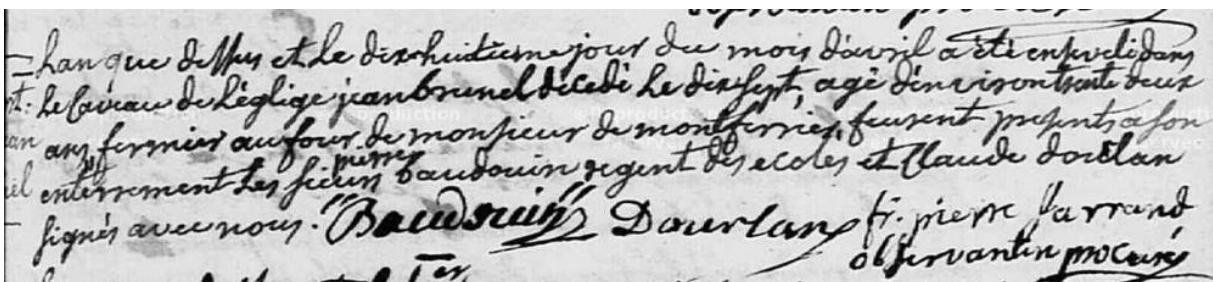 han que dessus et le dix huitieme jour du mois d'avril a été enseveli dans
le caveau de l'églige jean brunel decedé le dix sept, agé d'environ trante deux
ans fermier au four de monsieur de montferrier, feurent presents a son
enterrement les sieurs pierre baudouin regent des ecoles et Claude dourlan
signés avec nous. Baudouin Dourlan fr. pierre farrand
observantin procuré